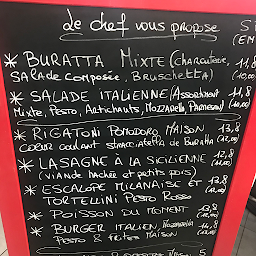 de chef vous propose
* BURATTA MIXTE (Charcuterie, 11,8
SALADE COMPOSÉE, BRUSCHETTA) (10,00)
* SALADE ITALIENNE (Assortiment 11,8
Mixte, PESTO, Artichauts, Mozzarella, Parmesan) (10,00)
* RIGATONI POMODORO MAISON 13,8
COEUR COULANT STRACCIATELLA DE BURATTA (12,00)
* LASAGNE À LA SICILIENNE 12,8
(VIANDE HACHÉE ET PETITS POIS)
* ESCALOPE MILANAISE ET 13,8
TORTELLINI PESTO ROSSO
* POISSON DU MOMENT 13,8
* BURGER ITALIEN, Mozzarella 14,8
PESTO & FRITES MAISON